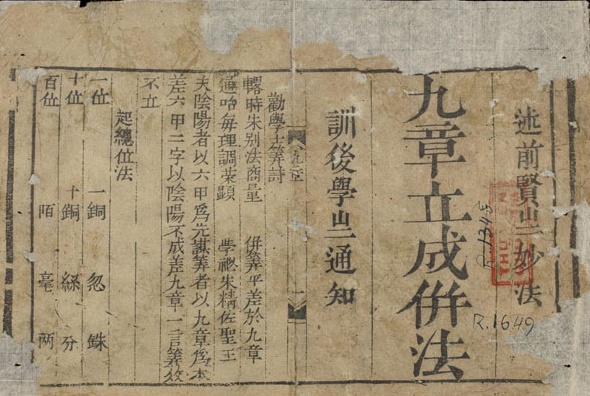 述前賢㞢妙法
九章立成併法
訓後學㞢通知
勸學士筭詩
轄時朱別法商量 併筭平差於九章
通咍每理調荣顕 學秘朱精佐聖王
夫陰陽者以六甲爲先謀筭者以九章爲本
差六甲二字以陰陽不成差九章一言筭
不立
起總位法
一位 一銅 忽 銖
十位 十銅 絲 分
百位 陌 毫 兩
R.1345
R.1649